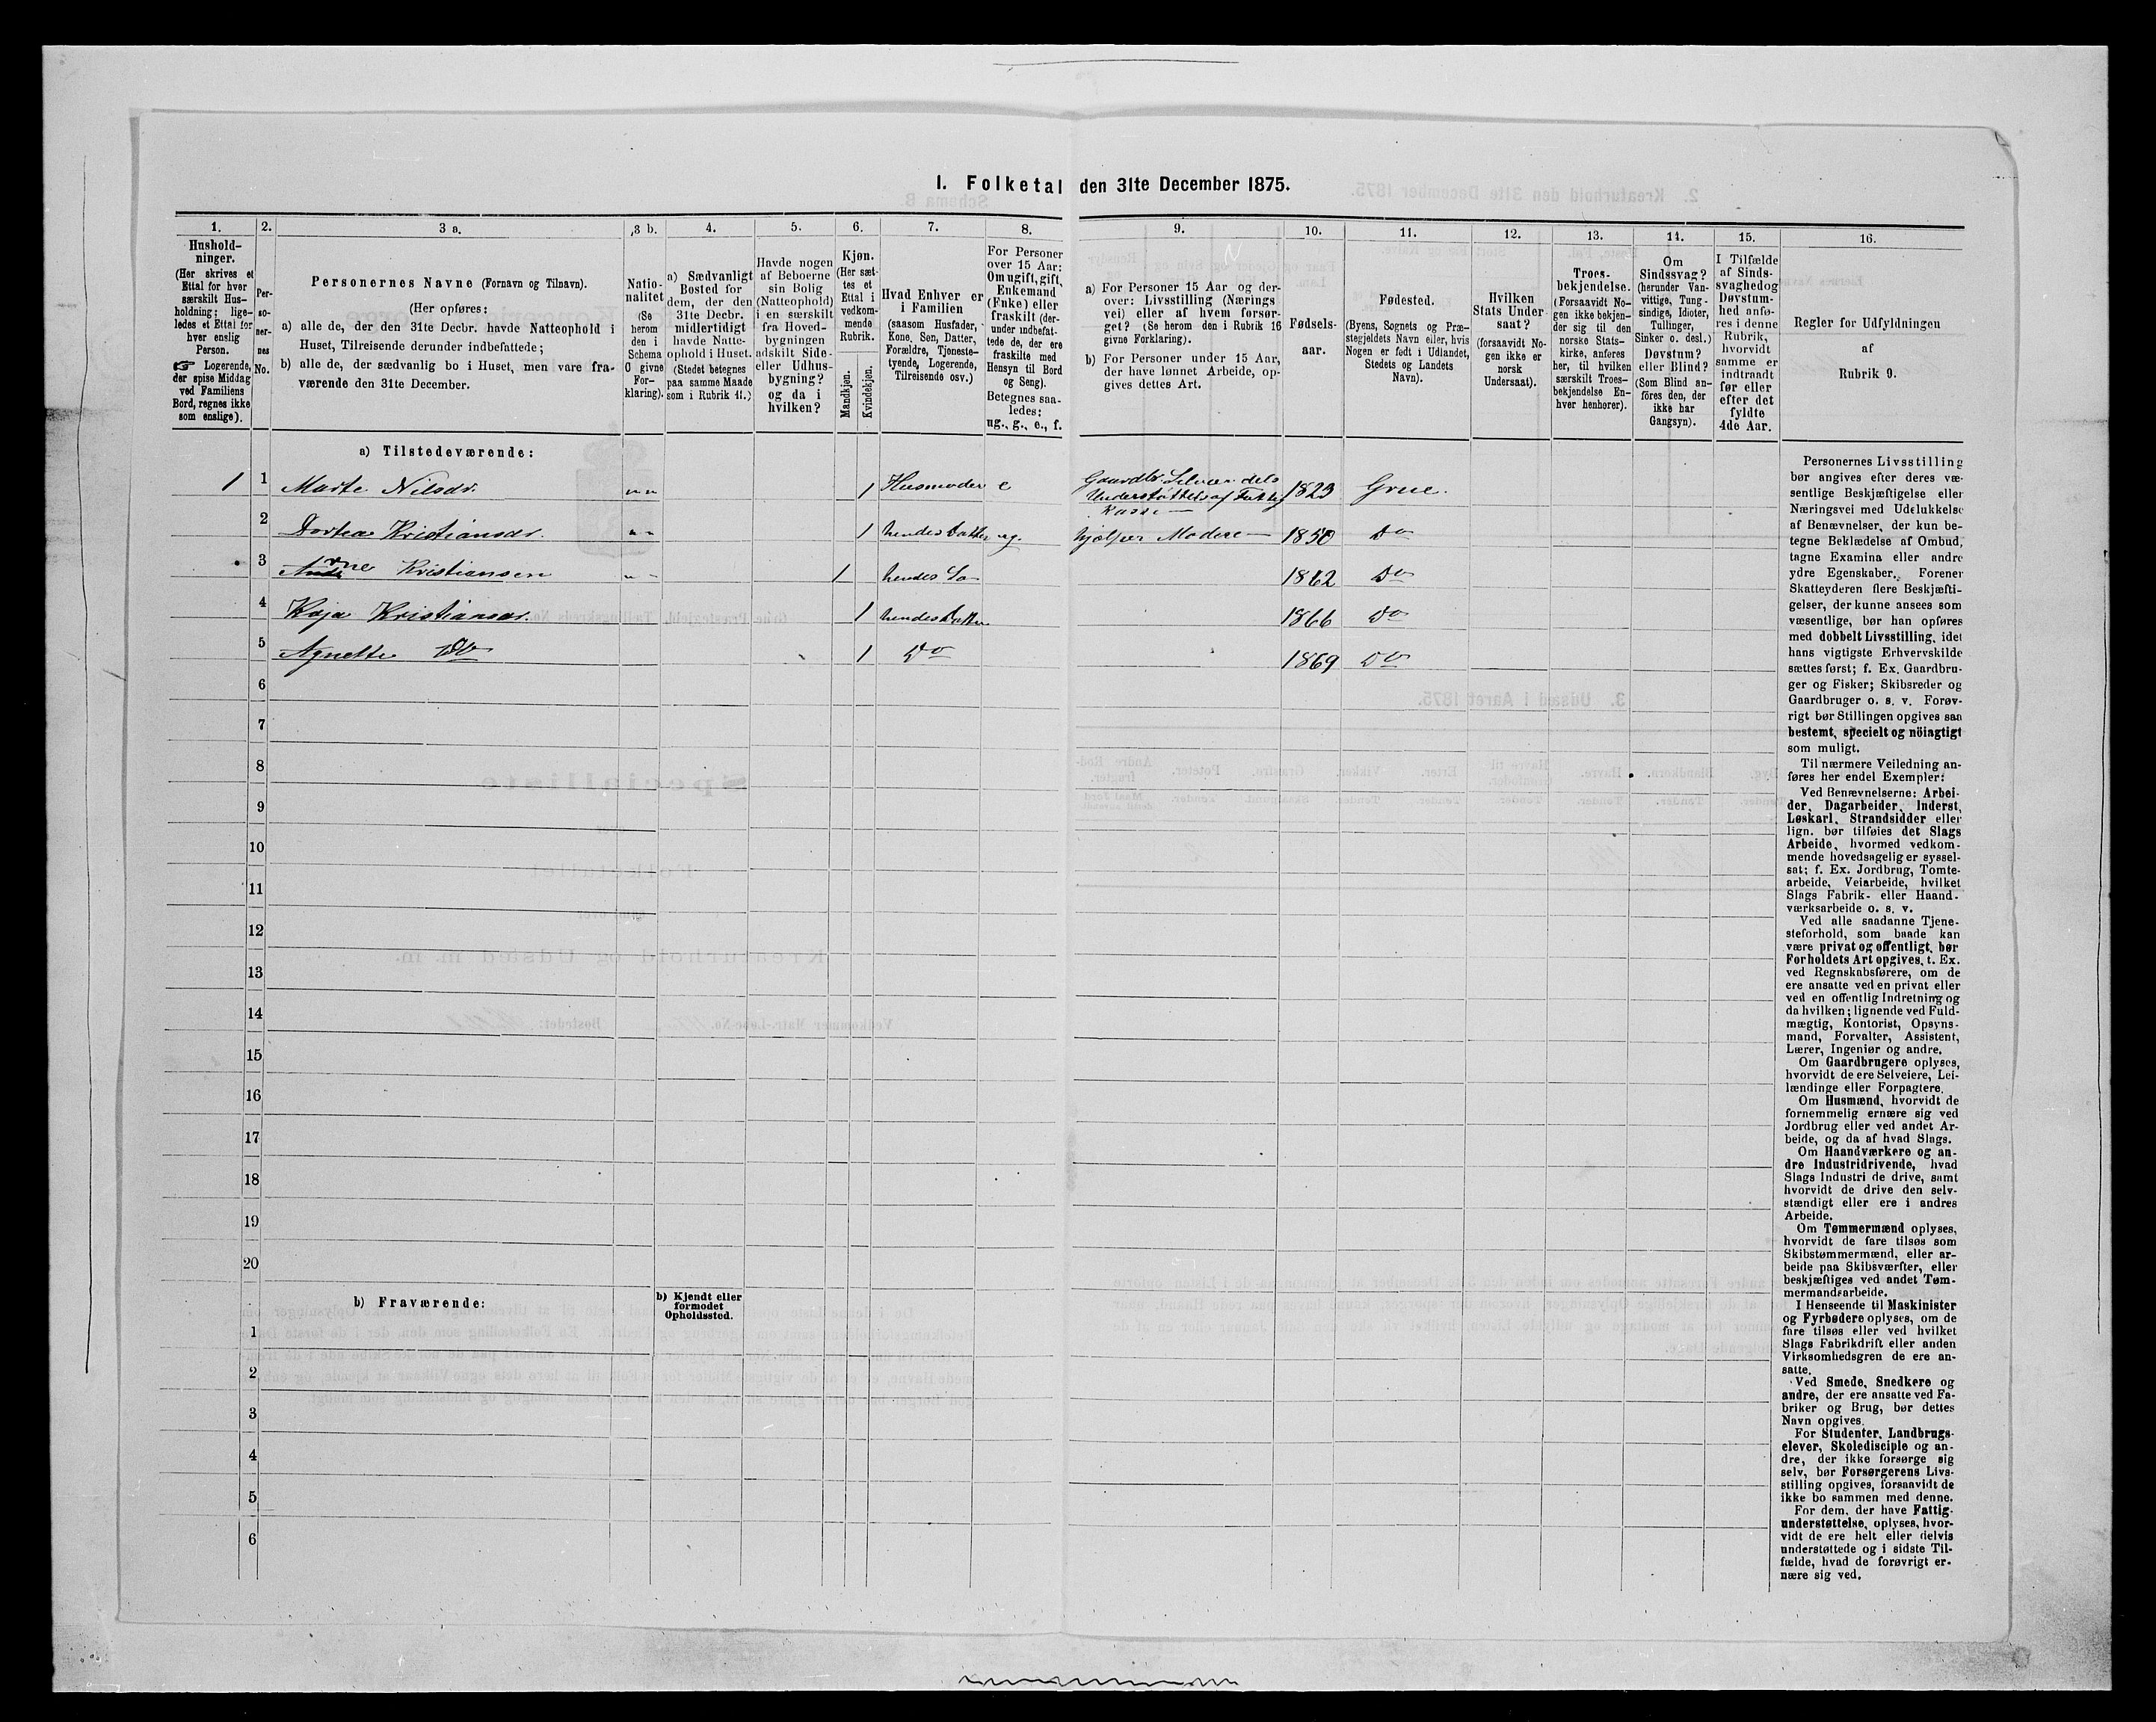 I. Folketal den 31te December 1875.
1.
Hushold-
ninger.
(Her skrives et
Ettal for hver
særskilt Hus-
holdning; lige-
ledes et Ettal for
hver enslig
Person.
☞ Logerende,
der spise Middag
ved Familiens
Bord, regnes ikke
som enslige).
2.
Per-
so-
ner-
nes
No.
3 a.
Personernes Navne (Fornavn og Tilnavn).
(Her opføres:
a) alle de, der den 31te Decbr. havde Natteophold i
Huset, Tilreisende derunder indbefattede;
b) alle de, der sædvanlig bo i Huset, men vare fra-
værende den 31te December.
3 b.
Natio-
nalitet
(Se
herom
den i
Schema
O givne
For-
klaring).
4.
a) Sædvanligt
Bosted for
dem, der den
31te Decbr.
midlertidigt
havde Natte-
ophold i Huset.
(Stedet betegnes
paa samme Maade
som i Rubrik 11.)
5.
Havde nogen
af Beboerne
sin Bolig
(Natteophold)
i en særskilt
fra Hoved-
bygningen
adskilt Side-
eller Udhus-
bygning?
og da i
hvilken?
6.
Kjøn.
(Her sæt-
tes et
Ettal i
vedkom-
mende
Rubrik.
Mandkjøn.
Kvindekjøn.
7.
Hvad Enhver er
i Familien
(saasom Husfader,
Kone, Søn, Datter,
Forældre, Tjeneste-
tyende, Logerende,
Tilreisende osv.)
8.
For Personer
over 15 Aar:
Om ugift, gift,
Enkemand
(Enke) eller
fraskilt (der-
under indbefat-
tede de, der ere
fraskilte med
Hensyn til Bord
og Seng).
Betegnes saa-
ledes:
ug., g., e., f.
9.
a) For Personer 15 Aar og der-
over: Livsstilling (Nærings
vei) eller af hvem forsør-
get? (Se herom den i Rubrik 16
givne Forklaring).
b) For Personer under 15 Aar,
der have lønnet Arbeide, op-
gives dettes Art.
10.
Fødsels-
aar.
11.
Fødested.
(Byens, Sognets og Præ-
stegjeldets Navn eller, hvis
Nogen er født i Udlandet,
Stedets og Landets
Navn).
12.
Hvilken
Stats Under
saat?
(forsaavidt No-
gen ikke er
norsk
Undersaat).
13.
Troes-
bekjendelse.
(Forsaavidt No-
gen ikke bekjen-
der sig til den
norske Stats-
kirke, anføres
her, til hvilken
særskilt Troes-
bekjendelse En-
hver henhører).
14.
Om
Sindssvag?
(herunder Van-
vittige, Tung-
sindige, Idioter,
Tullinger,
Sinker o. desl.)
Døvstum?
eller Blind?
(Som Blind an-
føres den, der
ikke har
Gangsyn).
15.
I Tilfælde
af Sinds-
svaghed og
Døvstum-
hed anfø-
res i denne
Rubrik,
hvorvidt
samme er
indtraadt
før eller
efter det
fyldte
4de Aar.
16.
Regler for Udfyldningen
af
Rubrik 9.
a) Tilstedeværende:
1 1 Marte Nilsdr. 1 Husmoder e Gaardbr. Selveier dels Understøttelse af Fattig Kasse 1823 Grue.
2 Dortea Kristiansdr. 1 hendes Datter ug. hjelper Modere 1850 Do
3 Arne Kristiansen 1 hendes Søn 1862 Do
4 Kaja Kristiansdr. 1 hendes Datter 1866 Do
5 Agnette Do 1 Do 1869 Do
6
7
8
9
10
11
12
13
14
15
16
17
18
19
20
b) Fraværende:
b) Kjendt eller
formodet
Opholdssted.
1
2
3
4
5
6
Personernes Livsstilling
bør angives efter deres væ-
sentlige Beskjæftigelse eller
Næringsvei med Udelukkelse
af Benævnelser, der kun be-
tegne Beklædelse af Ombud,
tagne Examina eller andre
ydre Egenskaber. Forener
Skatteyderen flere Beskjæfti-
gelser, der kunne ansees som
væsentlige, bør han opføres
med dobbelt Livsstilling, idet
hans vigtigste Erhvervskilde
sættes først; f. Ex. Gaardbru-
ger og Fisker; Skibsreder og
Gaardbruger o. s. v. Forøv-
rigt bør Stillingen opgives saa
bestemt, specielt og nöiagtigt
som muligt.
Til nærmere Veiledning an-
føres her endel Exempler:
Ved Benævnelserne: Arbei-
der, Dagarbeider, Inderst,
Løskarl, Strandsidder eller
lign. bør tilføies det Slags
Arbeide, hvormed vedkom-
mende hovedsagelig er syssel-
sat; f. Ex. Jordbrug, Tomte-
arbeide, Veiarbeide, hvilket
Slags Fabrik- eller Haand-
værksarbeide o. s. v.
Ved alle saadanne Tjene-
steforhold, som baade kan
være privat og offentligt, bør
Forholdets Art opgives, t. Ex.
ved Regnskabsførere, om de
ere ansatte ved en privat eller
ved en offentlig Indretning og
da hvilken; lignende ved Fuld-
mægtig, Kontorist, Opsyns-
mand, Forvalter, Assistent,
Lærer, Ingeniør og andre.
Om Gaardbrugere oplyses,
hvorvidt de ere Selveiere, Lei-
lændinge eller Forpagtere.
Om Husmænd, hvorvidt de
fornemmelig ernære sig ved
Jordbrug eller ved andet Ar-
beide, og da af hvad Slags.
Om Haandværkere og an-
dre Industridrivende, hvad
Slags Industri de drive, samt
hvorvidt de drive den selv-
stændigt eller ere i andres
Arbeide.
Om Tømmermænd oplyses,
hvorvidt de fare tilsøs som
Skibstømmermænd, eller ar-
beide paa Skibsværfter, eller
beskjæftiges ved andet Tøm-
mermandsarbeide.
I Henseende til Maskinister
og Fyrbødere oplyses, om de
fare tilsøs eller ved hvilket
Slags Fabrikdrift eller anden
Virksomhedsgren de ere an-
satte.
Ved Smede, Snedkere og
andre, der ere ansatte ved Fa-
briker og Brug, bør dettes
Navn opgives.
For Studenter, Landbrugs-
elever, Skoledisciple og an-
dre, der ikke forsørge sig
selv, bør Forsørgerens Livs-
stilling opgives, forsaavidt de
ikke bo sammen med denne.
For dem, der have Fattig-
understøttelse, oplyses, hvor-
vidt de ere helt eller delvis
understøttede og i sidste Til-
fælde, hvad de forøvrigt er-
nære sig ved.